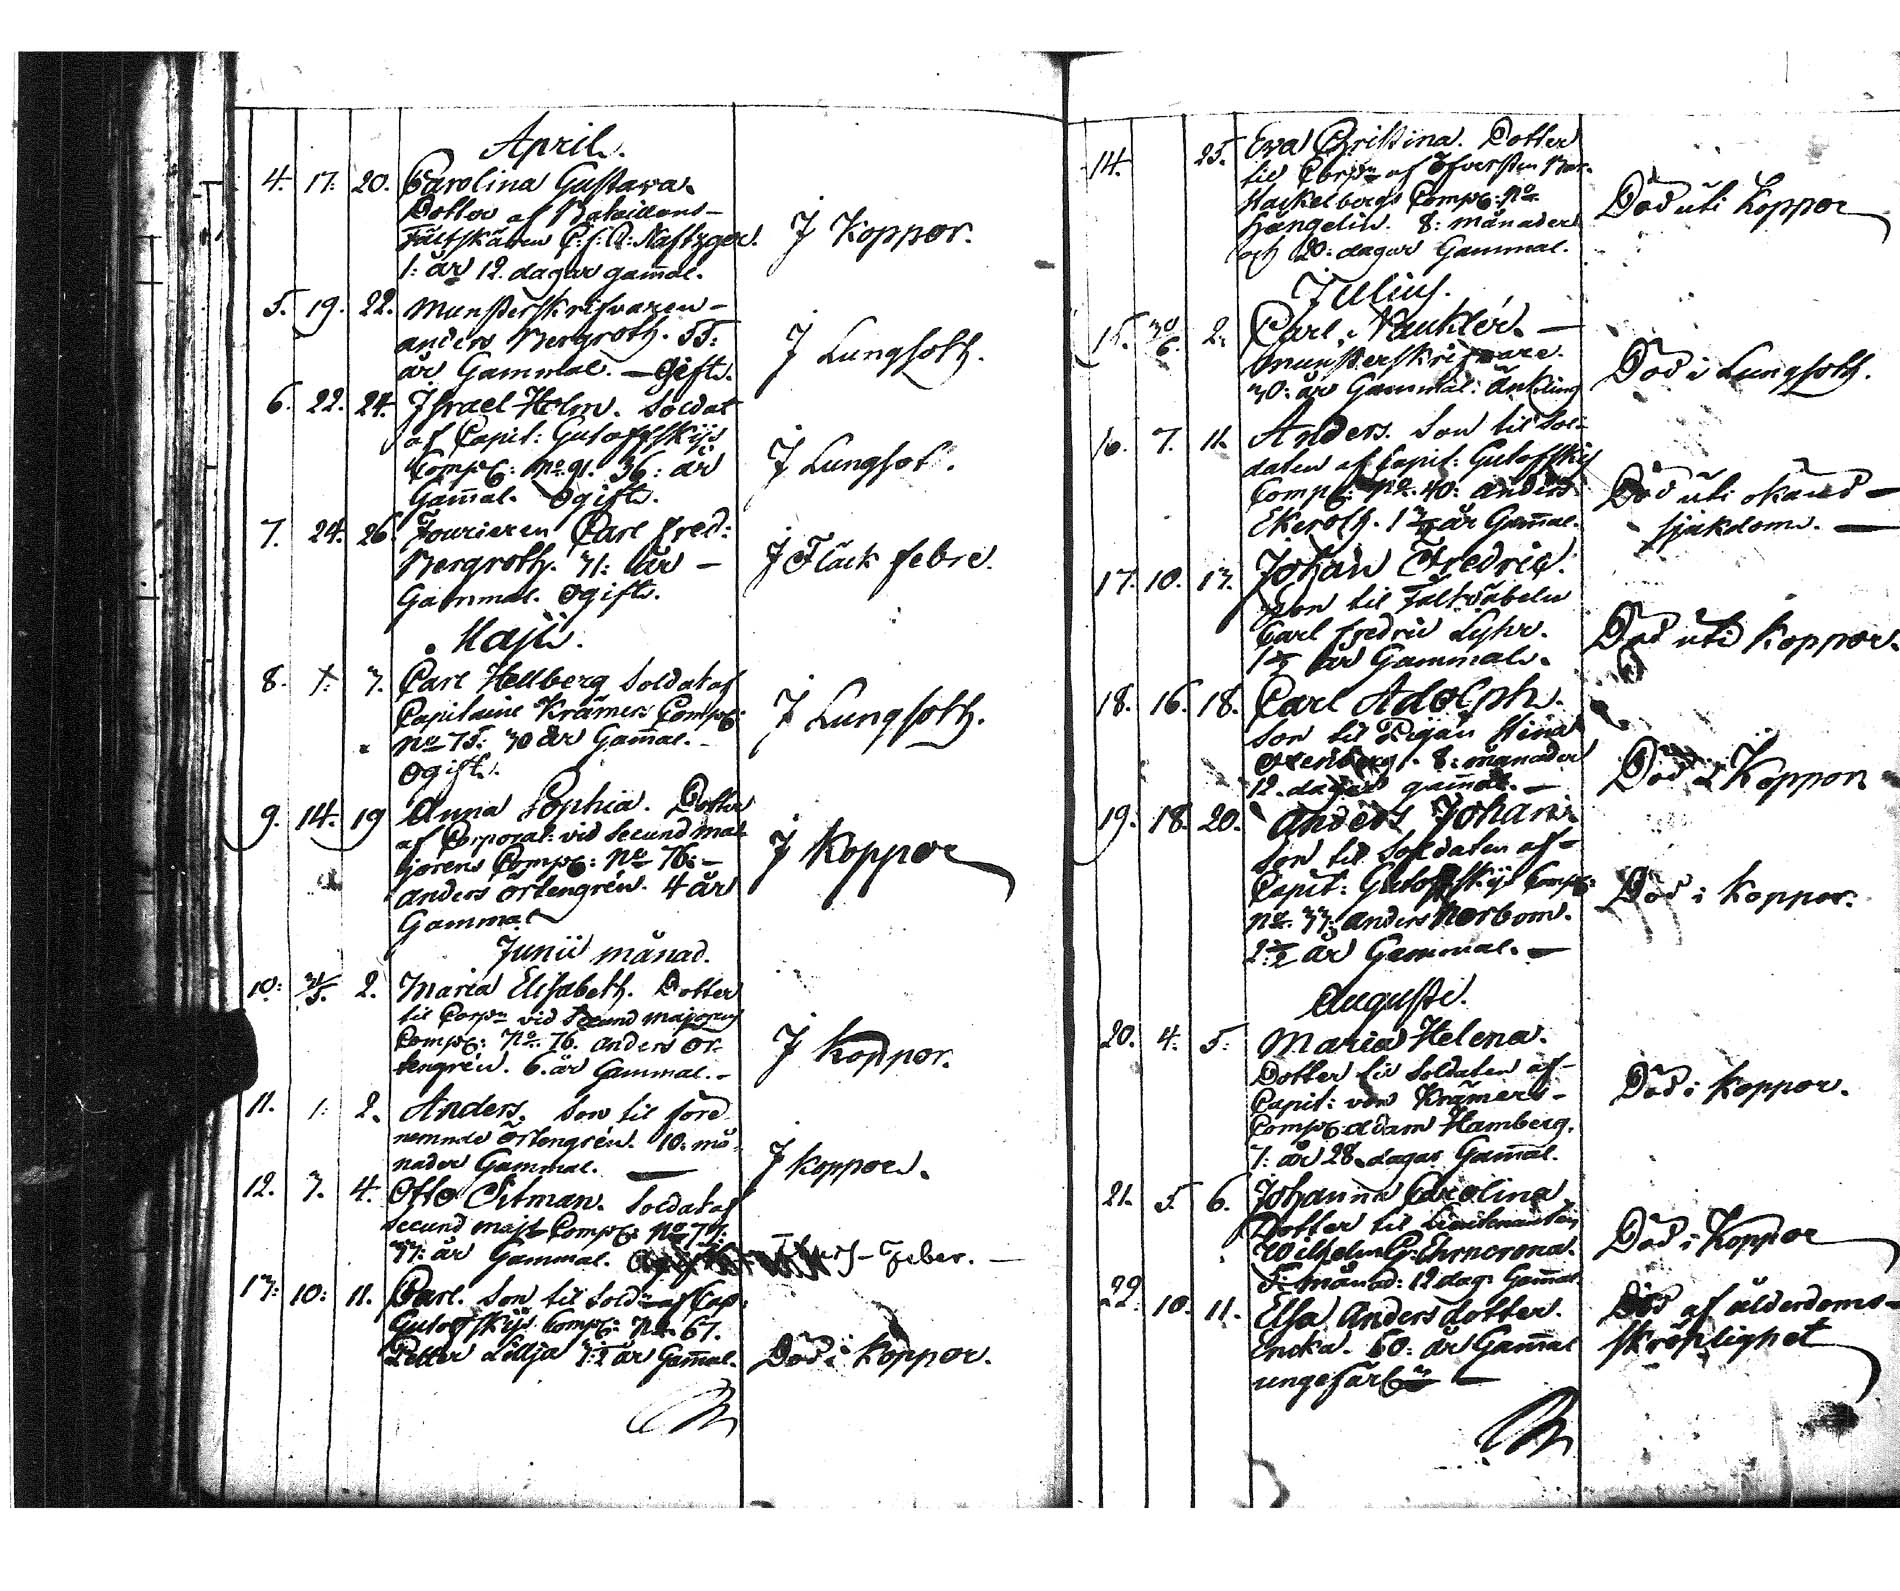 April.
4. 17. 20. Carolina Gustava.
Dotter af Bataillons-
Fältskären C: J: A: Naftzger. J Koppor.
1: år 12. dagar gam̄al.
5. 19. 22. Munsterskrifvaren -
Anders Bergroth. 55: J Lungsoth.
år Gammal. - Gift.
6. 22. 24. Jsrael Holm. Soldat
af Capit: Gutoffskijs
Comp: No 91. 36: år J Lungsot.
Gam̄al. Ogift.
7. 24. 26 Fourieren Carl Fred:
Bergroth. 31: år - J Fläck febre.
Gammal. Ogift.
Maji.
8. 7. Carl Hellberg Soldat af
Capitaine Krämers Comp:
No 75: 30 år Gam̄al. - J Lungsoth.
Ogift.
9. 14. 19 Anna Sophia. Dotter
af Corporal: vid Secund Ma-
jorens Comp: No 76: - J Koppor
Anders Örtengrén. 4 år
Gammal
Junii månad.
10: 31/5. 2. Maria Elisabeth. Dotter
til Corp: vid Secund Majorens
Comp: No. 76. Anders Ör- J Koppor.
tengrén. 6. år Gammal. -
11. 1: 2. Anders. Son til före
nemnde Örtengrén. 10: må-
nader Gammal. J Koppor.
12. 3. 4. Otto Silman. Soldat af
Secund Maj: Comp: No 79:
33: år Gammal. Feber. -
13: 10: 11. Carl. Son til Sold: af Cap:
Gutoffskijs Comp: No 67.
Petter Lillja 3: 1/2 år Gam̄al. Död i Koppor.
14. 25. Eva Christina. Dotter
til af Öfversten
Hackelbergs Comp: No Död uti Koppor
Hängelin. 8: månader
och 20: dagar Gammal.
Julius.
15. 30/6. 2. Carl. Nauklér. -
Munsterskrifvare. Död i Lungsoth.
30: år Gammal. Änkling
16. 7. 11. Anders. Son til Sol-
daten af Capit: Gutoffskijs
Comp: No. 40: Anders Död uti okänd -
Ekeroth. 1 1/2 år Gam̄al. sjukdom. -
17. 10. 13. Johan Fredric.
Son til Fältväbeln
Carl Fredric Lyhr. Död uti Koppor.
1 1/2 år Gammal.
18. 16. 18. Carl Adolph.
Son til Pigan Stina
8: månader Död i Koppor
12. dagar gam̄al. -
19. 18. 20. Anders Johan.
Son til Soldaten af -
Capit: Gutoffskijs Comp: Död i Koppor.
No. 33: Anders Norbom.
2 1/2 år Gammal. -
Augusti.
20. 4. 5. Maria Helena.
Dotter til Soldaten af -
Capit: von Krämers - Död i Koppor.
Comp: Adam Hamberg.
7: år 28. dagar Gam̄al.
21. 5. 6. Johanna Carolina
Dotter til Lieutenanten
Wilhelm G: Ehrncrona. Död i Koppor
5: månad: 12 dag: Gam̄al
22. 10. 11. Elsa Andersdotter. Död af ålderdoms-
Encka. 60: år Gam̄al skröplighet
ungefär